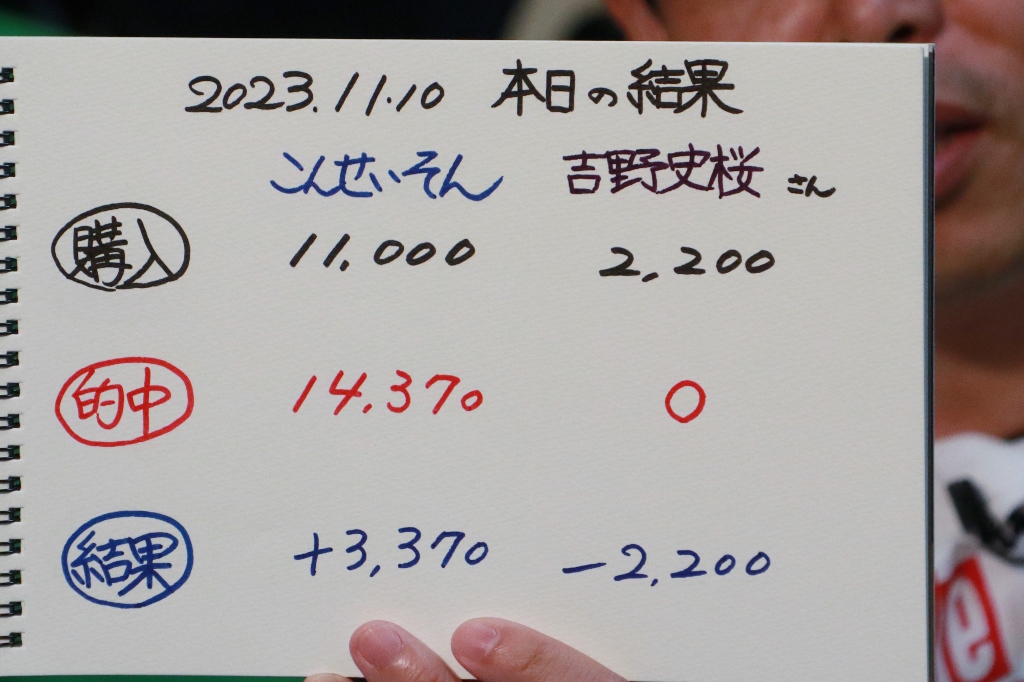 2023.11.10 本日の結果
こんせいそん 吉野史桜さん
購入 11,000 2,200
的中 14,370 0
結果 +3,370 -2,200
e